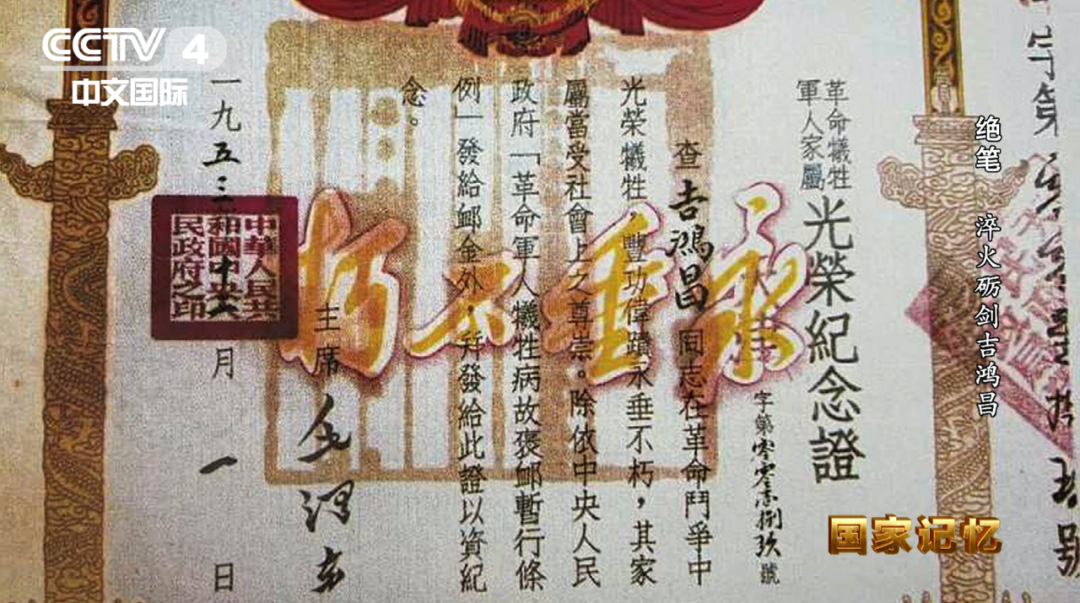 CCTV 4
中文国际
革命犧牲
軍人家屬
光榮紀念證
字第零零
捌玖號
查吉鴻昌同志在革命鬥爭中
光榮犧牲,豐功偉蹟永垂不朽,其家
屬當受社會上之尊崇。除依中央人民
政府「革命軍人犧牲病故褒卹暫行條
例」發給卹金外,并發給此證以資紀
念。
主席 毛澤東
一九五三
月一日
中華人民共
和國中央人
民政府之印
永垂不朽
绝笔 淬火砺剑吉鸿昌
国家记忆